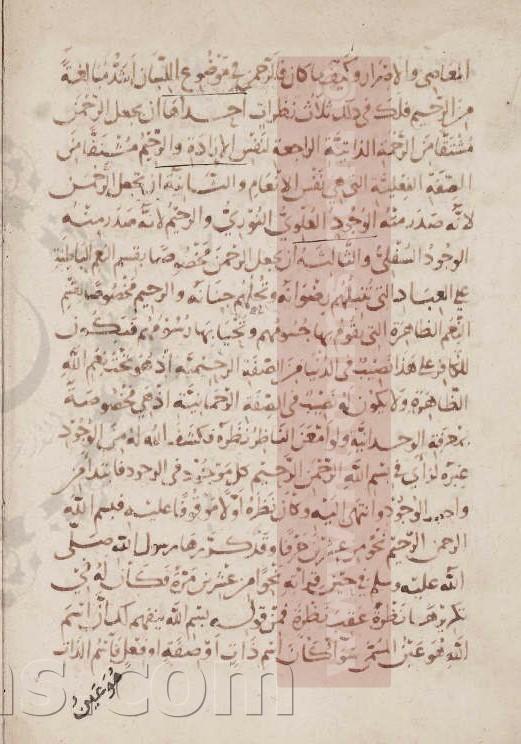 المعاصي والاضرار وكيف ما كان فالرحمن في موضوع اللسان اشد مبالغة
من الرحيم فلك في ذلك ثلاث نظرات احداها ان يجعل الرحمن
مشتقا من الرحمة الذاتية الراجعة لنفس الارادة والرحيم مشتقا من
الصفة الفعلية التي هي نفس الانعام والثانية ان يجعل الرحمن
لانه صدر منه الوجود العلوي النوري والرحيم لانه صدر منه
الوجود السفلي والثالثة ان يجعل الرحمن مخصوصا بقسم النعم الباطنة
على العباد التي تنيلهم رضوانه وتحلهم جنانه والرحيم مخصوصا بقسم
النعم الظاهرة التي يقوم بها جسومهم وتحيا بها رسومهم فتكون
للكافر على هذا نصيب في الدنيا من الصفة الرحيمية اذ هو تحت نعم الله
الظاهرة ولا يكون له نصيب في الصفة الرحمانية اذ هي مخصوصة
بمعرفة الوحدانية ولو امعن الناظر نظره فكشف الله له من الوجود
غيره لرأى في بسم الله الرحمن الرحيم كل موجود في الوجود فابتدا من
واجد الوجود وانتهى اليه وكان نظره اولا موقوفا عليه فبسم الله
الرحمن الرحيم نحو من عشرين حرفا وقد كررها رسول الله صلى
الله عليه وسلم في حين قراته نحوا من عشرين مرة فكان له في
تكريرها نظرة عقب نظرة فمن قوله بسم الله يفهم لك ان اسم
الله هو عين المسمى سوا كان اسم ذات او صفة او فعل فاسم الذات
هو عين
ns.com